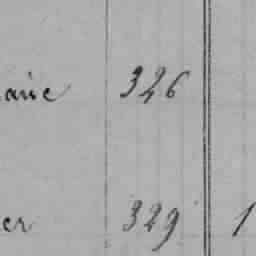 aire 326
er 329 1